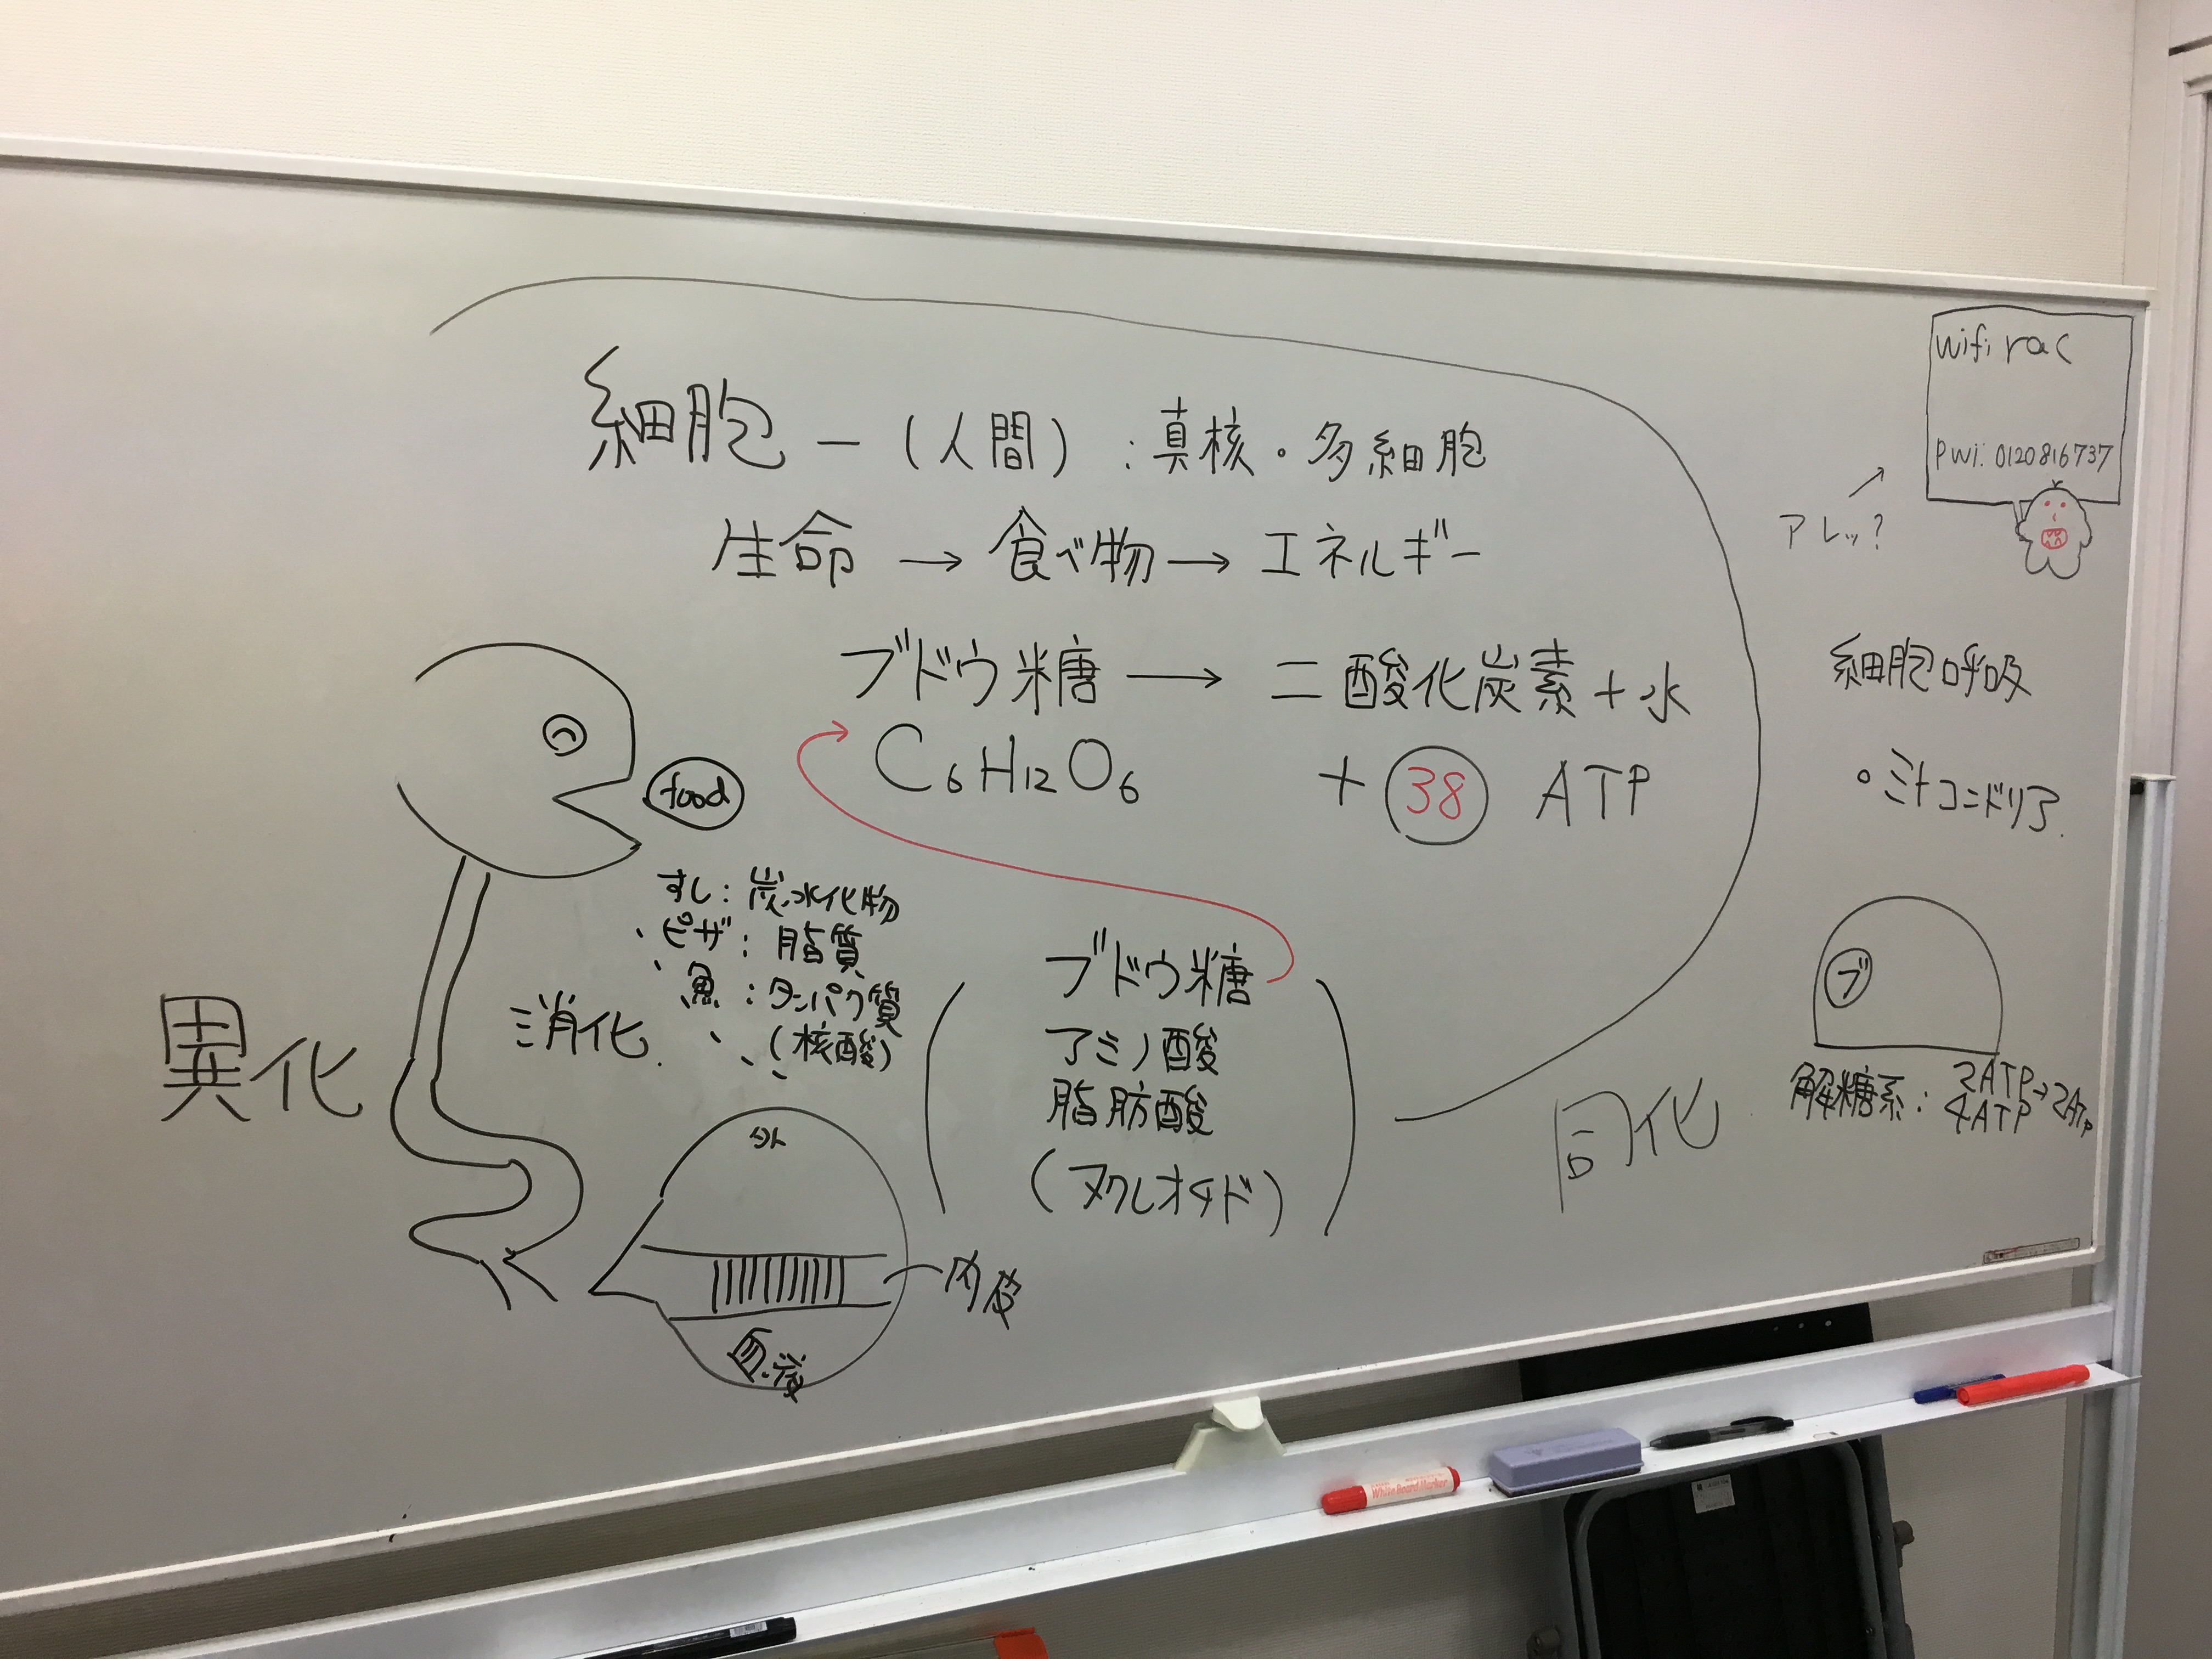 細胞 ー (人間) : 真核・多細胞
生命 → 食べ物 → エネルギー
ブドウ糖 → 二酸化炭素 + 水
C6H12O6 + 38 ATP
food
すし : 炭水化物
ピザ : 脂質
魚 : タンパク質
(核酸)
消化.
異化
ブドウ糖
アミノ酸
脂肪酸
(ヌクレオチド)
同化
外
内皮
wifi rac
pwi: 0120816737
アレッ?
細胞呼吸
・ミトコンドリア.
ブ
解糖系 : 2ATP → 2ATP
4ATP
White Board Marker